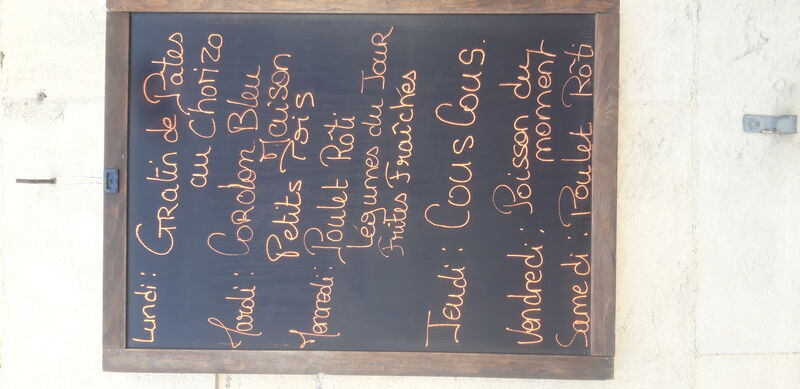 Lundi : Gratin de Pates
au Chorizo
Mardi : Cordon Bleu
Maison
Petits Pois
Mercredi : Poulet Rôti
Légumes du Jour
Frites Fraîches
Jeudi : Couscous.
Vendredi : Poisson du
moment
Samedi : Poulet Rôti